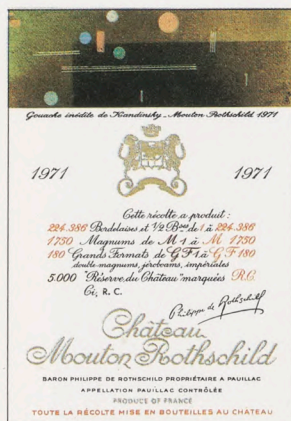 Gouache inédite de Kandinsky_Mouton Rothschild 1971
1971 1971
Cette récolte a produit :
224.386 Bordelaises et ½ Bses de 1 à 224.386
1730 Magnums de M 1 à M 1730
180 Grands Formats de G F 1 à G F 180
double magnums, jéroboams, impériales
5.000 "Réserve du Château" marquées R.C.
Ci, R. C.
Philippe de Rothschild
Château
Mouton Rothschild
BARON PHILIPPE DE ROTHSCHILD PROPRIÉTAIRE A PAUILLAC
APPELLATION PAUILLAC CONTRÔLÉE
PRODUCE OF FRANCE
TOUTE LA RÉCOLTE MISE EN BOUTEILLES AU CHÂTEAU